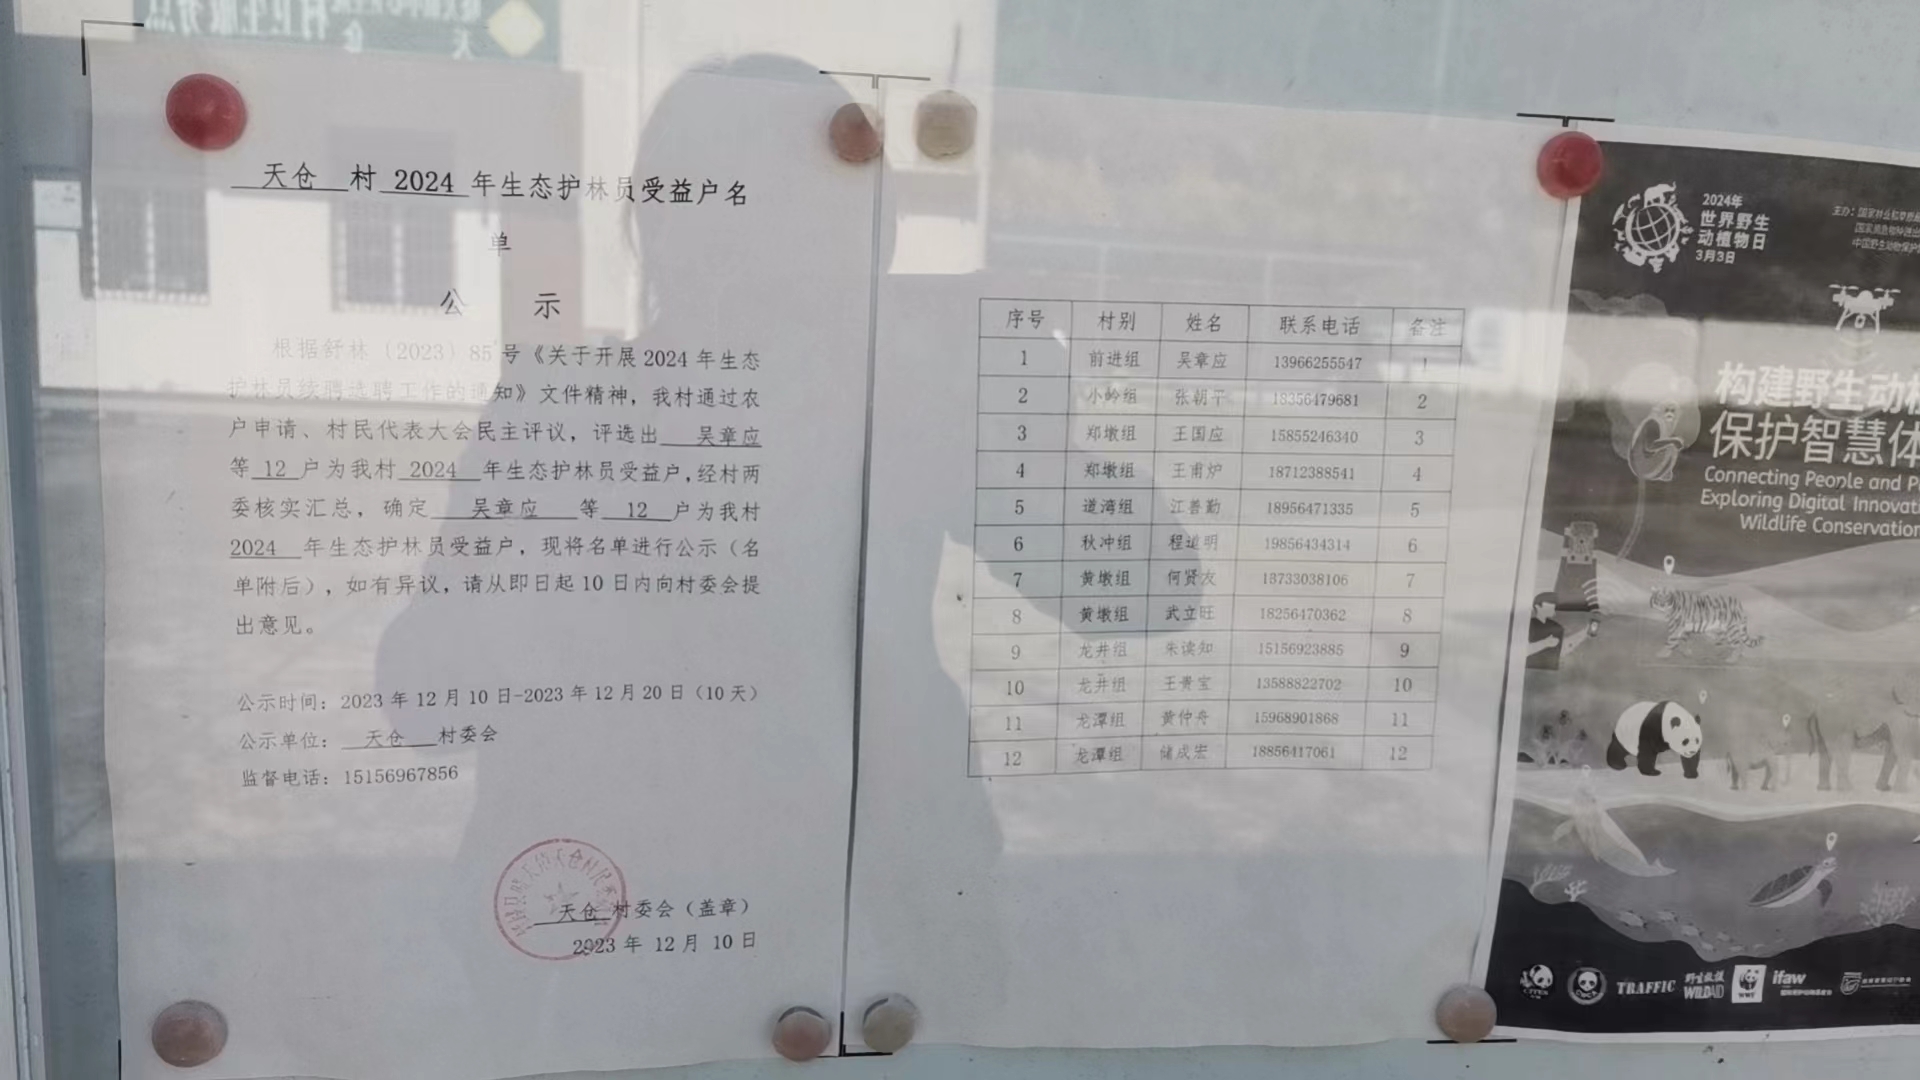 天仓 村 2024 年生态护林员受益户名
单
公 示
根据舒林（2023）85号《关于开展 2024 年生态
护林员续聘选聘工作的通知》文件精神，我村通过农
户申请、村民代表大会民主评议，评选出 吴章应
等 12 户为我村 2024 年生态护林员受益户,经村两
委核实汇总，确定 吴章应 等 12 户为我村
2024 年生态护林员受益户，现将名单进行公示（名
单附后），如有异议，请从即日起 10 日内向村委会提
出意见。
公示时间：2023 年 12 月 10 日-2023 年 12 月 20 日（10 天）
公示单位： 天仓 村委会
监督电话：15156967856
天仓 村委会（盖章）
2023 年 12 月 10 日
序号 村别 姓名 联系电话 备注
1 前进组 吴章应 13966255547 1
2 小岭组 张朝平 18356479681 2
3 郑墩组 王国应 15855246340 3
4 郑墩组 王甫炉 18712388541 4
5 道湾组 江善勤 18956471335 5
6 秋冲组 程道明 19856434314 6
7 黄墩组 何贤友 13733038106 7
8 黄墩组 武立旺 18256470362 8
9 龙井组 朱读知 15156923885 9
10 龙井组 王贵宝 13588822702 10
11 龙潭组 黄仲舟 15968901868 11
12 龙潭组 储成宏 18856417061 12
2024年
世界野生
动植物日
3月3日
构建野生动
保护智慧体
Connecting People and P
Exploring Digital Innovat
Wildlife Conservation
TRAFFIC
野生救援
WILDAID
WWF
ifaw